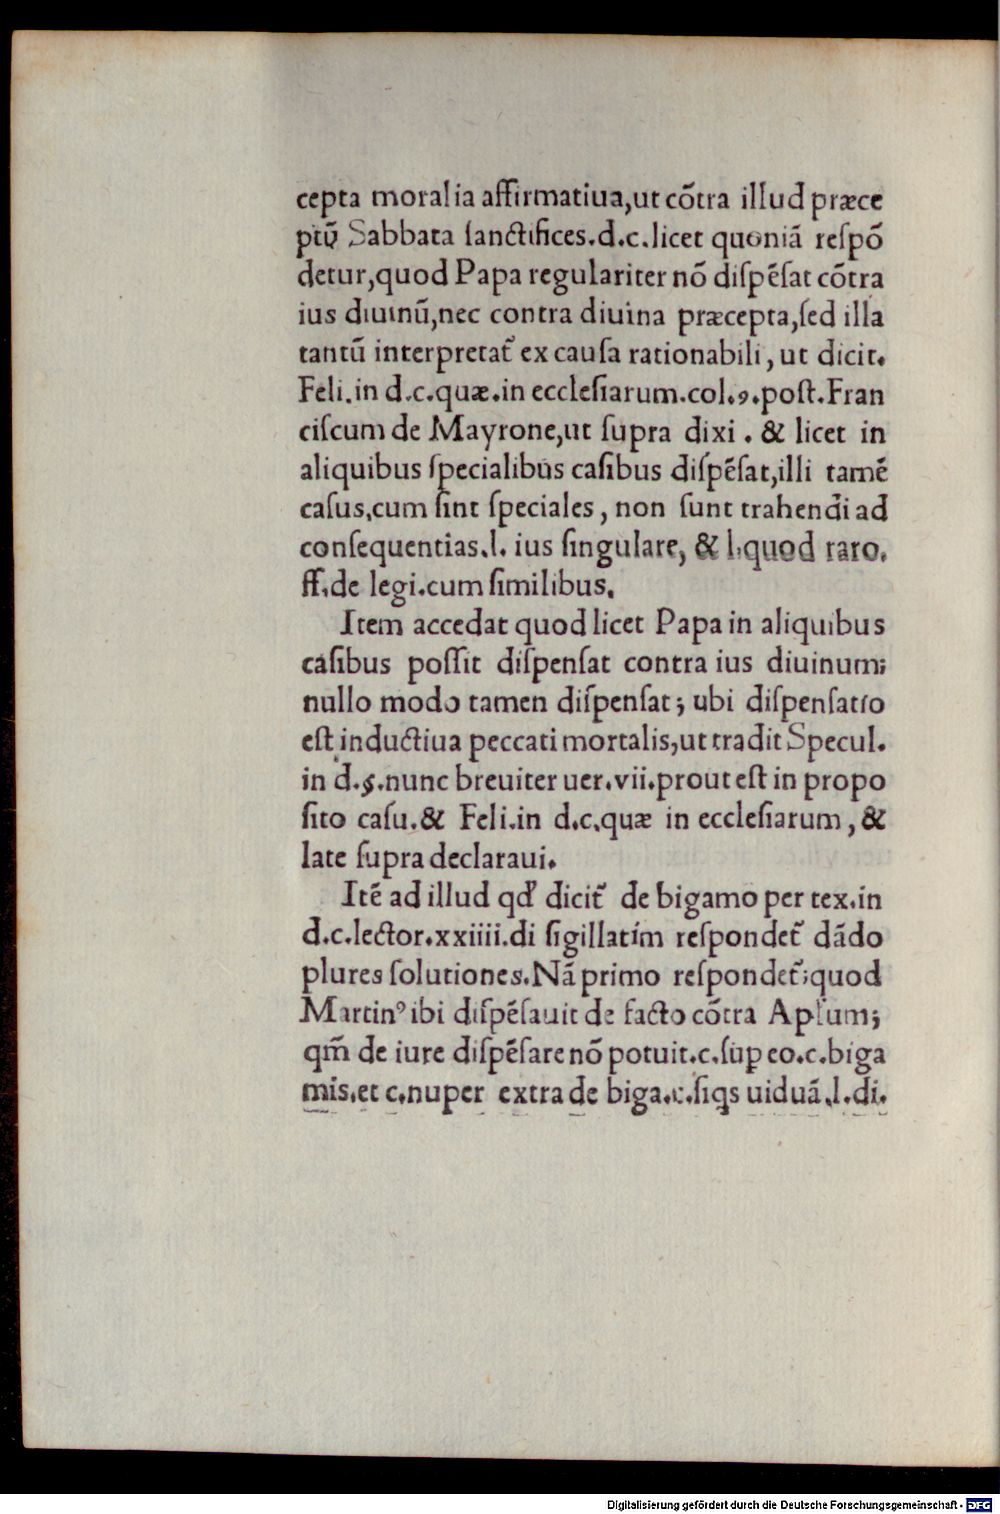 cepta moralia affirmatiua,ut cōtra illud præce
ptū Sabbata ſanctifices.d.c.licet quoniā reſpō
detur,quod Papa regulariter nō diſpēſat cōtra
ius diuinū,nec contra diuina præcepta,ſed illa
tantū interpretat᷑ ex cauſa rationabili, ut dicit.
Feli.in d.c.quæ.in eccleſiarum.col.9.poſt.Fran
ciſcum de Mayrone,ut ſupra dixi . & licet in
aliquibus ſpecialibus caſibus diſpēſat,illi tamē
caſus,cum ſint ſpeciales, non ſunt trahendi ad
conſequentias.l. ius ſingulare, & l.quod raro.
ff.de legi.cum ſimilibus.
Item accedat quod licet Papa in aliquibus
caſibus poſſit diſpenſat contra ius diuinum;
nullo modo tamen diſpenſat; ubi diſpenſatio
eſt inductiua peccati mortalis,ut tradit Specul.
in d.§.nunc breuiter uer.vii.prout eſt in propo
ſito caſu.& Feli.in d.c.quæ in eccleſiarum, &
late ſupra declaraui.
Itē ad illud qď dicit᷑ de bigamo per tex.in
d.c.lector.xxiiii.di ſigillatím reſpondet᷑ dādo
plures ſolutiones.Nā primo reſpondet᷑;quod
Martinꝰ ibi diſpēſauit de facto cōtra Apľum;
qm̄ de iure diſpēſare nō potuit.c.ſup eo.c.biga
mis.et c.nuper extra de biga.c.ſiqs uiduā.l.di.
Digitalisierung gefördert durch die Deutsche Forschungsgemeinschaft - DFG